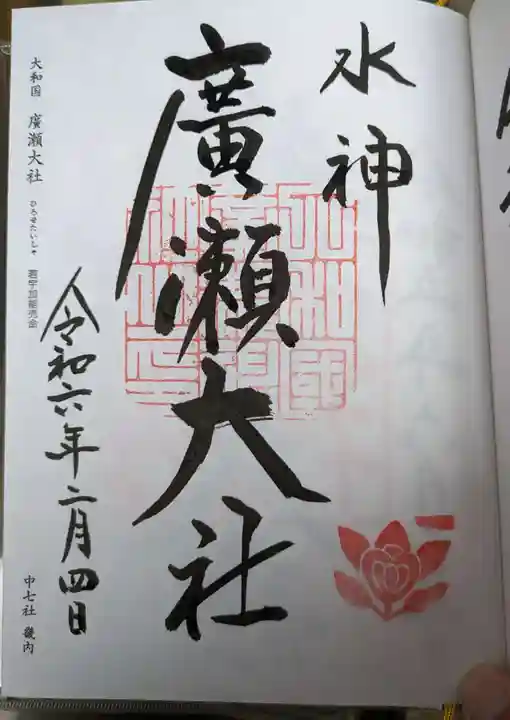 水神
廣瀬大社
令和六年二月四日
大和国 廣瀬大社 ひろせたいしゃ 若宇加能売命
中七社 畿内